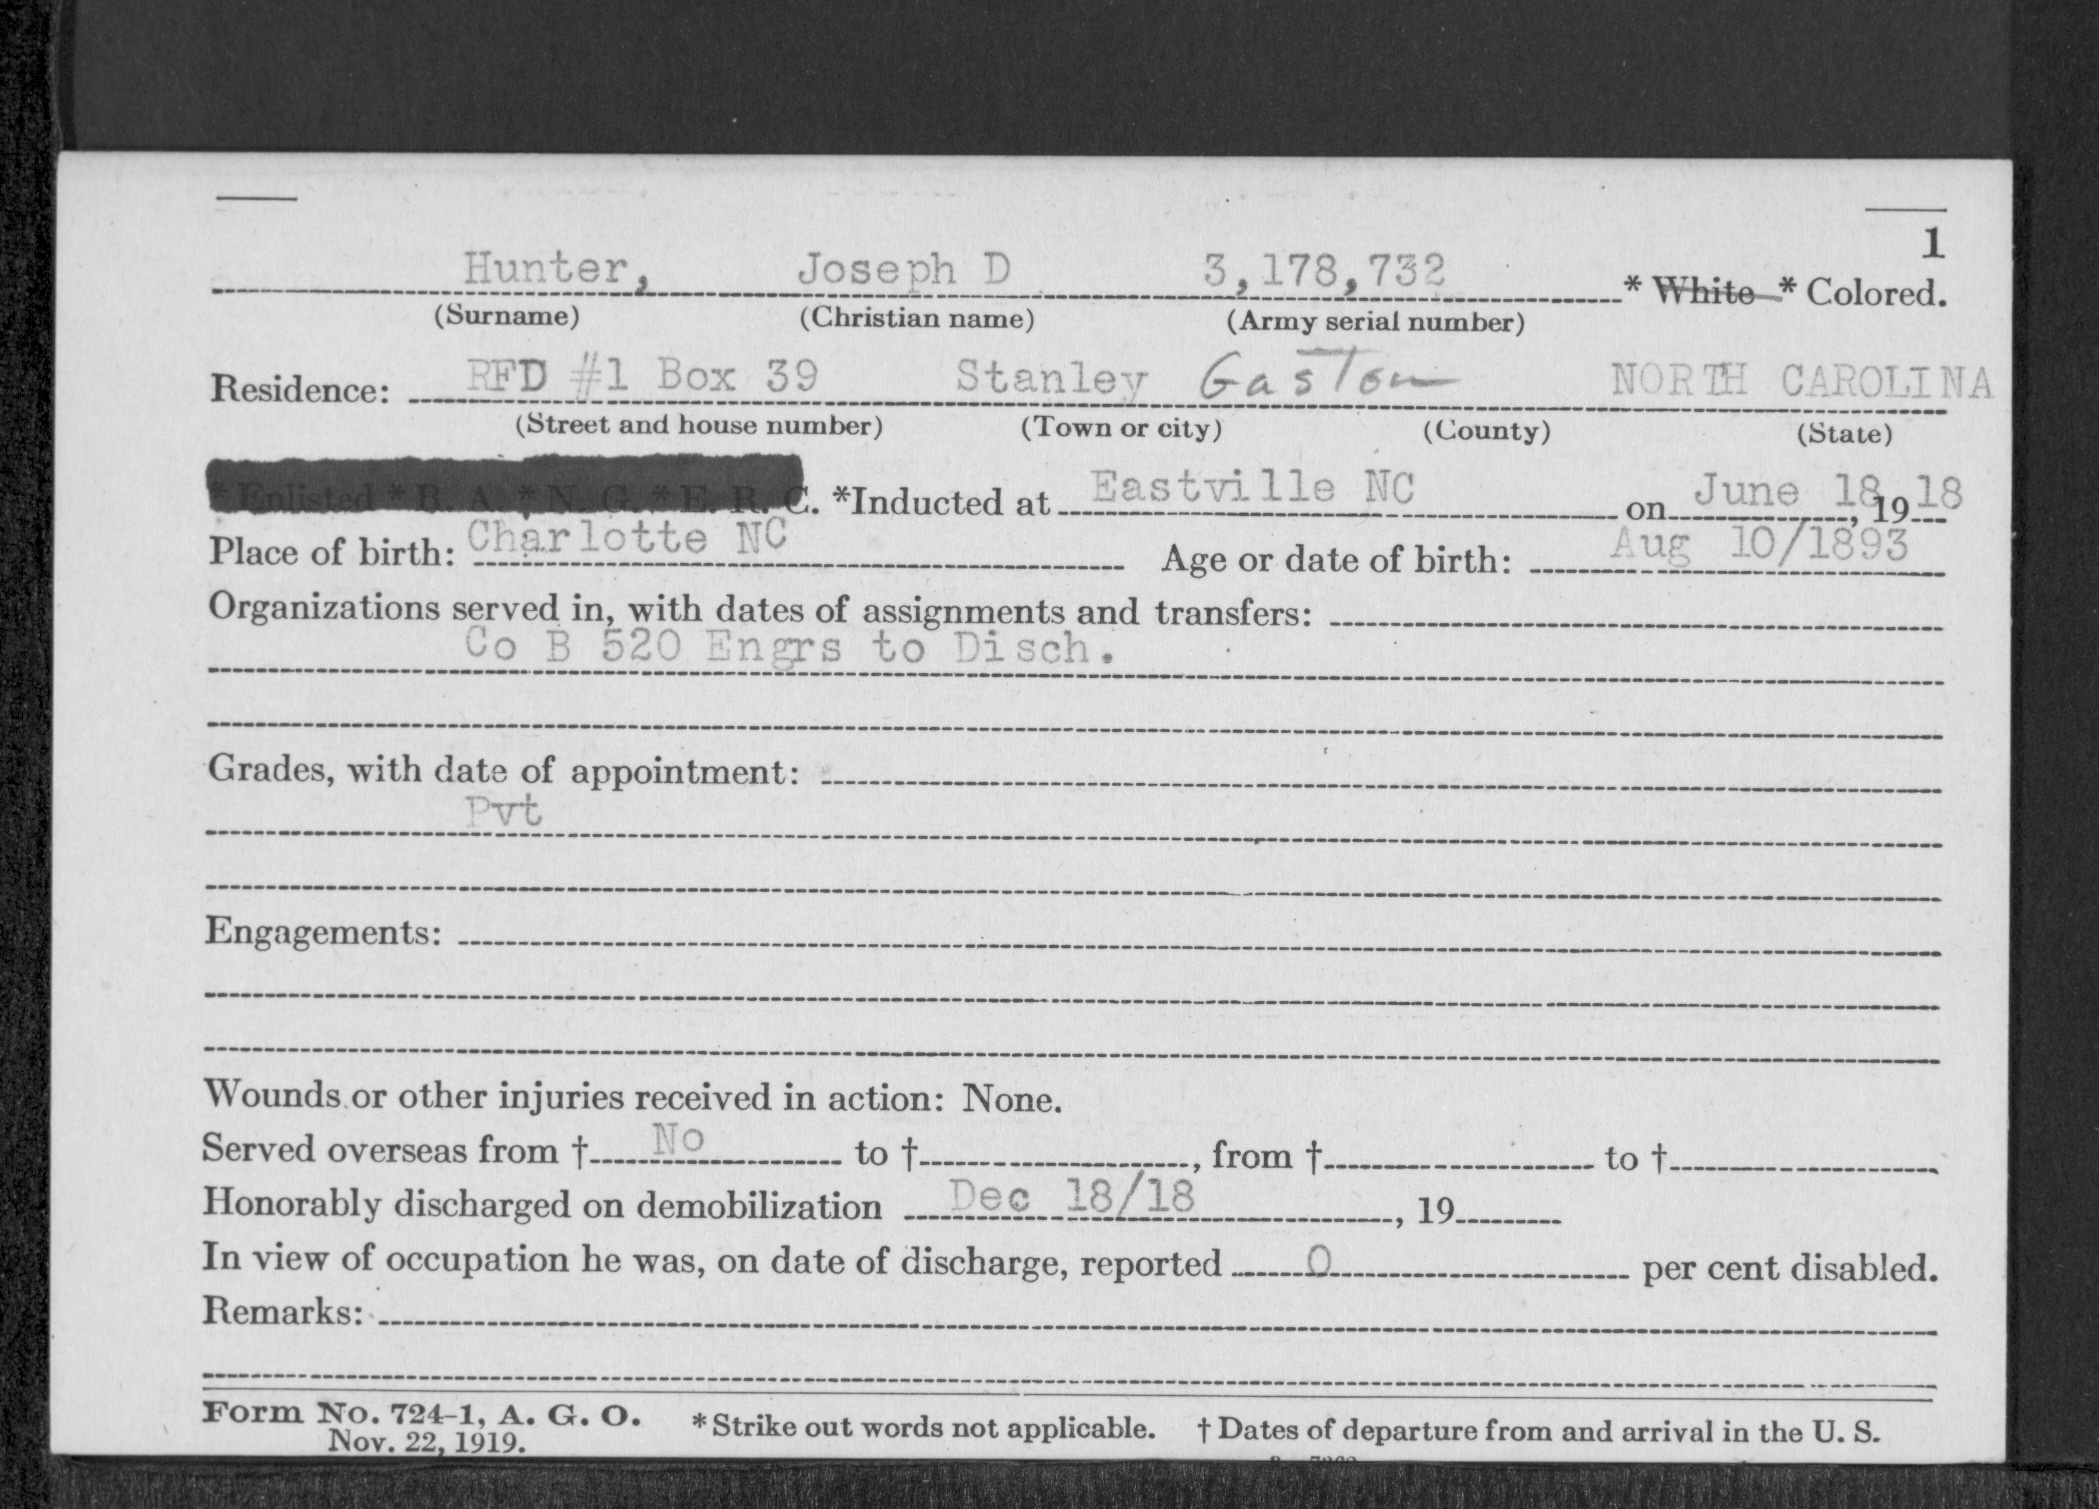 1
Hunter, Joseph D 3,178,732 * White * Colored.
(Surname) (Christian name) (Army serial number)
Residence: RFD #1 Box 39 Stanley Gaston NORTH CAROLINA
(Street and house number) (Town or city) (County) (State)
* Enlisted * R. A. * N. G. * E. R. C. *Inducted at Eastville NC on June 18, 1918
Place of birth: Charlotte NC Age or date of birth: Aug 10/1893
Organizations served in, with dates of assignments and transfers:
Co B 520 Engrs to Disch.
Grades, with date of appointment:
Pvt
Engagements:
Wounds or other injuries received in action: None.
Served overseas from † No to †, from † to †
Honorably discharged on demobilization Dec 18/18, 19
In view of occupation he was, on date of discharge, reported 0 per cent disabled.
Remarks:
Form No. 724-1, A. G. O. * Strike out words not applicable. † Dates of departure from and arrival in the U. S.
Nov. 22, 1919.